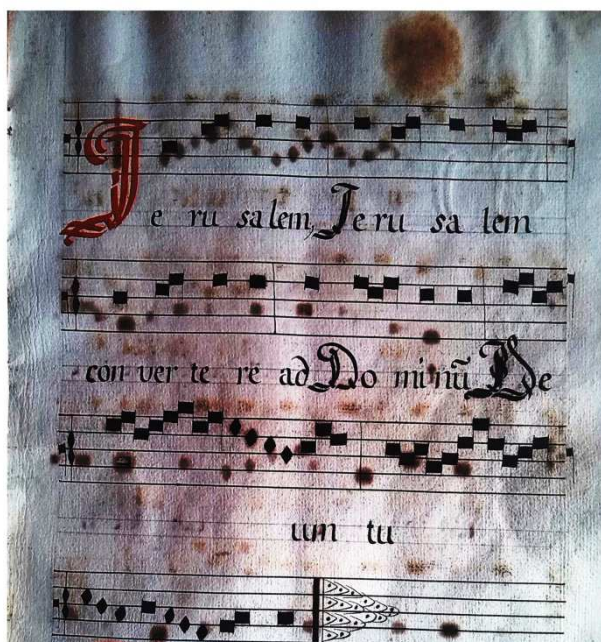 Je ru sa lem, Je ru sa lem
con ver te re ad Do mi nũ De
um tu